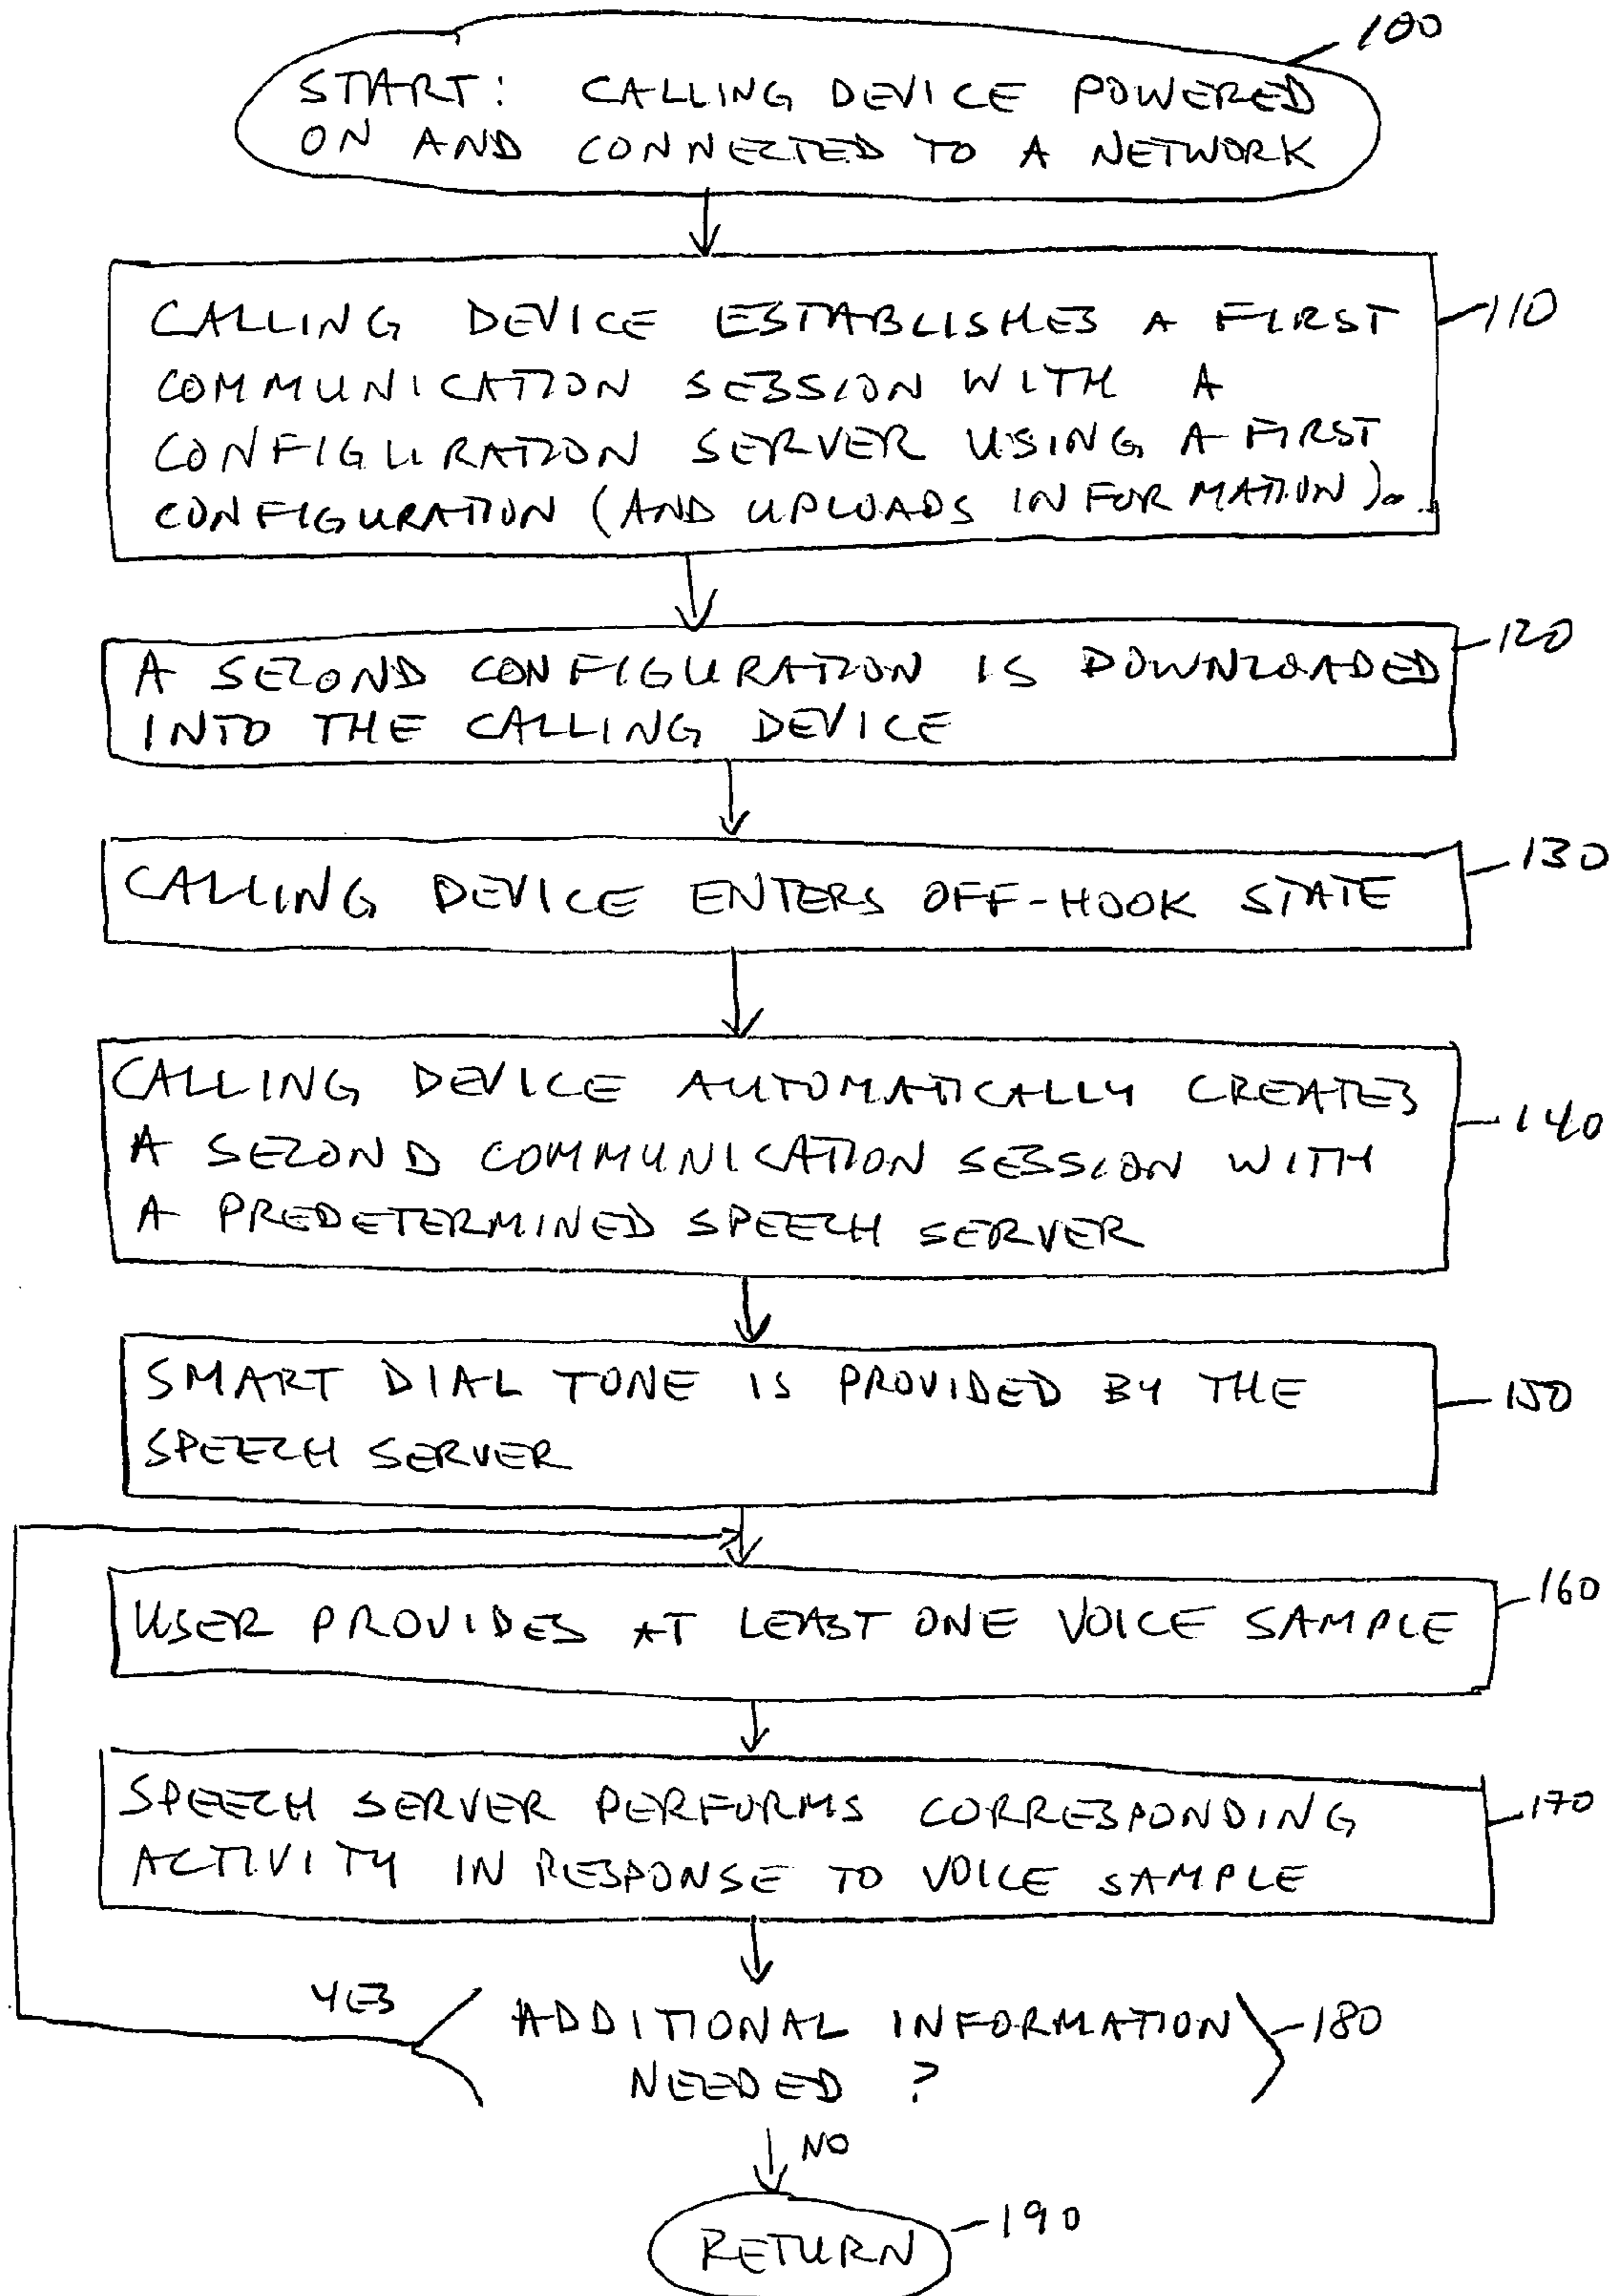 100
START: CALLING DEVICE POWERED
ON AND CONNECTED TO A NETWORK
CALLING DEVICE ESTABLISHES A FIRST
110
COMMUNICATION SESSION WITH A
CONFIGURATION SERVER USING A FIRST
CONFIGURATION (AND UPLOADS INFORMATION).
120
A SECOND CONFIGURATION IS DOWNLOADED
INTO THE CALLING DEVICE
130
CALLING DEVICE ENTERS OFF-HOOK STATE
CALLING DEVICE AUTOMATICALLY CREATES
140
A SECOND COMMUNICATION SESSION WITH
A PREDETERMINED SPEECH SERVER
SMART DIAL TONE IS PROVIDED BY THE
150
SPEECH SERVER
160
USER PROVIDES AT LEAST ONE VOICE SAMPLE
SPEECH SERVER PERFORMS CORRESPONDING
170
ACTIVITY IN RESPONSE TO VOICE SAMPLE
YES
ADDITIONAL INFORMATION
180
NEEDED ?
NO
190
RETURN